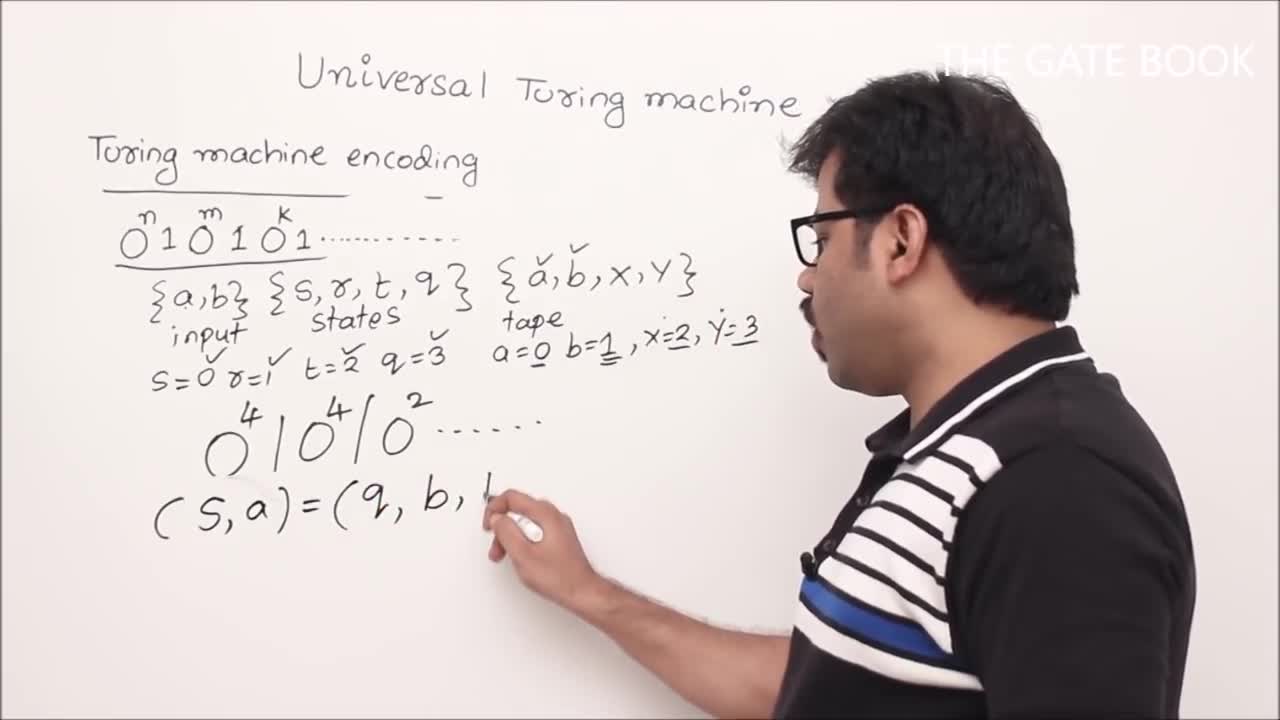 THE GATE BOOK
Universal Turing machine
Turing machine encoding
0ⁿ 1 0ᵐ 1 0ᵏ 1 ..............
{a,b} {s, r, t, q} {a, b, X, Y}
input states tape
s=0 r=1 t=2 q=3 a=0 b=1, X=2, Y=3
0⁴ | 0⁴ | 0² ......
(s, a) = (q, b,